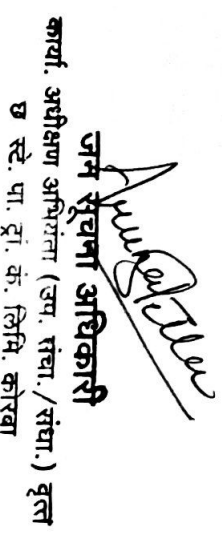 जन सूचना अधिकारी
कार्या. अधीक्षण अभियंता (उप. संधा./संधा.) वृत्त
छ स्टे. पा. ट्रां. कं. लिमि. कोरबा